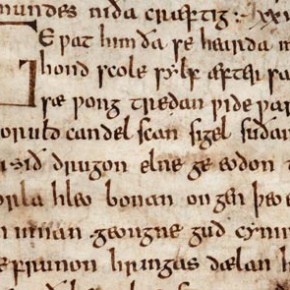 mundes niða cræftig :~ xxv
E ƿat him ða se hearda m
hond scole sylf æfter sa
sæ ƿong tredan ƿide ƿar
oruld candel scan sigel suðan
sið drugon elne ge eodon t
orla hleo bonan on gen þeo
n innan geongne guð cynin
efrunon hringas dælan h